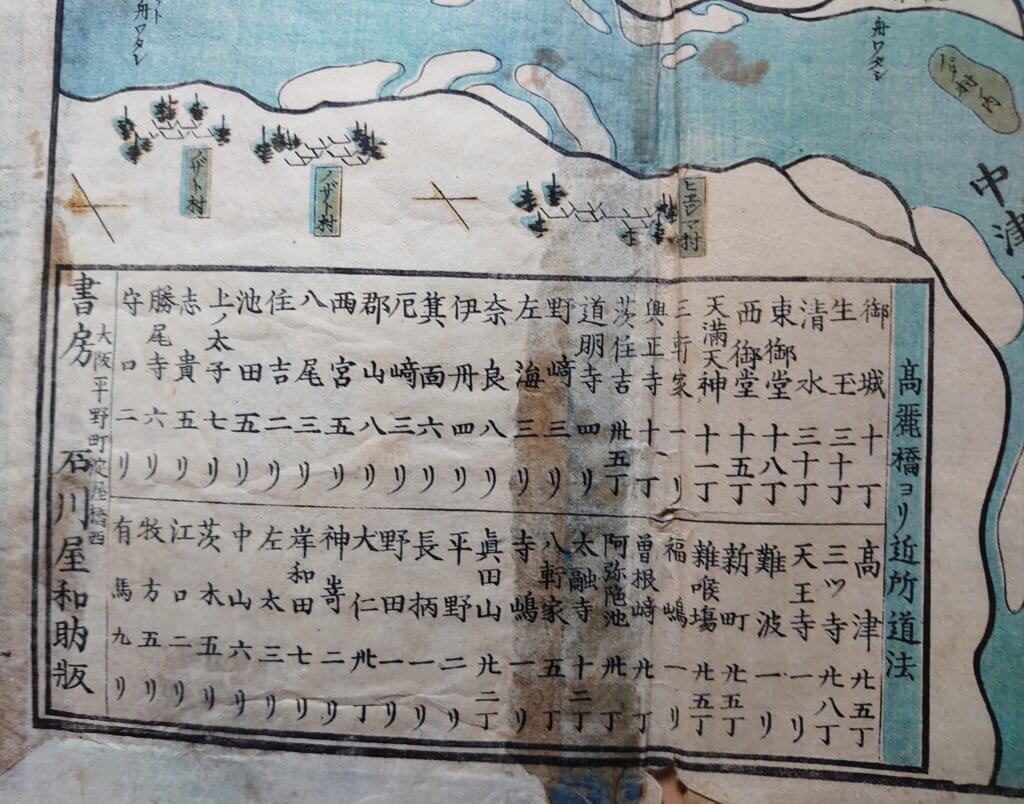 舟ワタシ
中津
舟ワタシ
ヒエジマ村
ノザト村
ノザト村
高麗橋ヨリ近所道法
御城 十丁
生玉 三十丁
清水 三十丁
東御堂 十八丁
西御堂 十五丁
天満天神 十一丁
三軒家 一リ
興正寺 十丁
茨住吉 卅五丁
道明寺 四リ
野﨑 三リ
左海 三リ
奈良 八リ
伊丹 四リ
箕面 六リ
尼﨑 三リ
郡山 八リ
西宮 五リ
八尾 三リ
住吉 二リ
池田 五リ
上ノ太子 七リ
志貴 五リ
勝尾寺 六リ
守口 二リ
高津 廿五丁
三ツ寺 廿八丁
天王寺 一リ
難波 一リ
新町 廿五丁
雜喉塲 廿五丁
福嶋 一リ
曽根﨑 廿丁
阿弥陁池 卅丁
太融寺 十二丁
八軒家 五丁
寺嶋 一リ
眞田山 廿二丁
平野 二リ
長柄 一リ
野田 一リ
大仁 卅丁
神嵜 二リ
岸和田 七リ
左太 三リ
中山 六リ
茨木 五リ
江口 二リ
牧方 五リ
有馬 九リ
大阪平野町淀屋橋西
書房 石川屋和助版